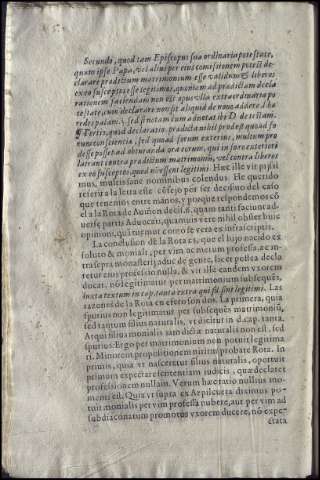 Secundo, quod tam Episcopus sua ordinaria potestate,
quàm ipse Papa, vel alius per eius comissionem potest de-
clarare prædictum matrimonium esse validum & liberos
ex eo susceptos esse legitimos, quoniam ad prædictam decla
rationem faciendam non est opus vlla extraordinaria po
testate, cum declarare non sit aliquid de nouo addere
Tertio, quod declaratio prædicta nihil prodest quoad fo
rum conscientiæ, sed quoad forum externum, multum pro
desse posset ad obturanda ora eorum, qui in foro exteriori
larent contra prædictum matrimonium, vel contra liberos
ex eo susceptos, quod nõ essent legitimi. Hæc ille vir pijssi
mus, multisque sane nominibus colendus. He querido
referir a la letra este cõsejo por ser decisiuo del caso
que tenemos entre manos, y porque respondemos cõ
el a la Rota de
opinioni, qui si sumet como se vera ex infrascriptis.
La conclusiõn de la Rota es, que el hijo nacido ex
soluto & moniali, per vim ac metum professa, ac in-
tra septa monasterij, aduc de gente, licet postea decla
retur eius professio nulla, & vt ille eandem vxorem
ducat, nõ legitimatur per matrimonium subsequẽs,
iuxta textum in cap. tanta extra qui fil. sint legitimi. Las
razones de la Rota en efeto son dos. La primera, quia
spurius non legitimatur per subsequẽs matrimoniũ,
sed tantum filius naturalis, vt dicitur in d. cap. tanta.
Atqui filius monialis iam dictæ naturalis non est, sed
spurius: Ergo per matrimonium non potuit legitima
ri. Minorem propositionem nititur probare Rota. In
primis, quia vt nasceretur filius naturalis, oportuit
primum expectare sententiam iudicis, quæ declaret
professionem nullam. Verum hæc ratio nullius mo-
menti est. Quia vt supra ex Azpilcueta diximus po-
tuit monialis per vim professa nubere, aut per vim ad
subdiaconatum promotus vxorem ducere, nõ expe-
ctata